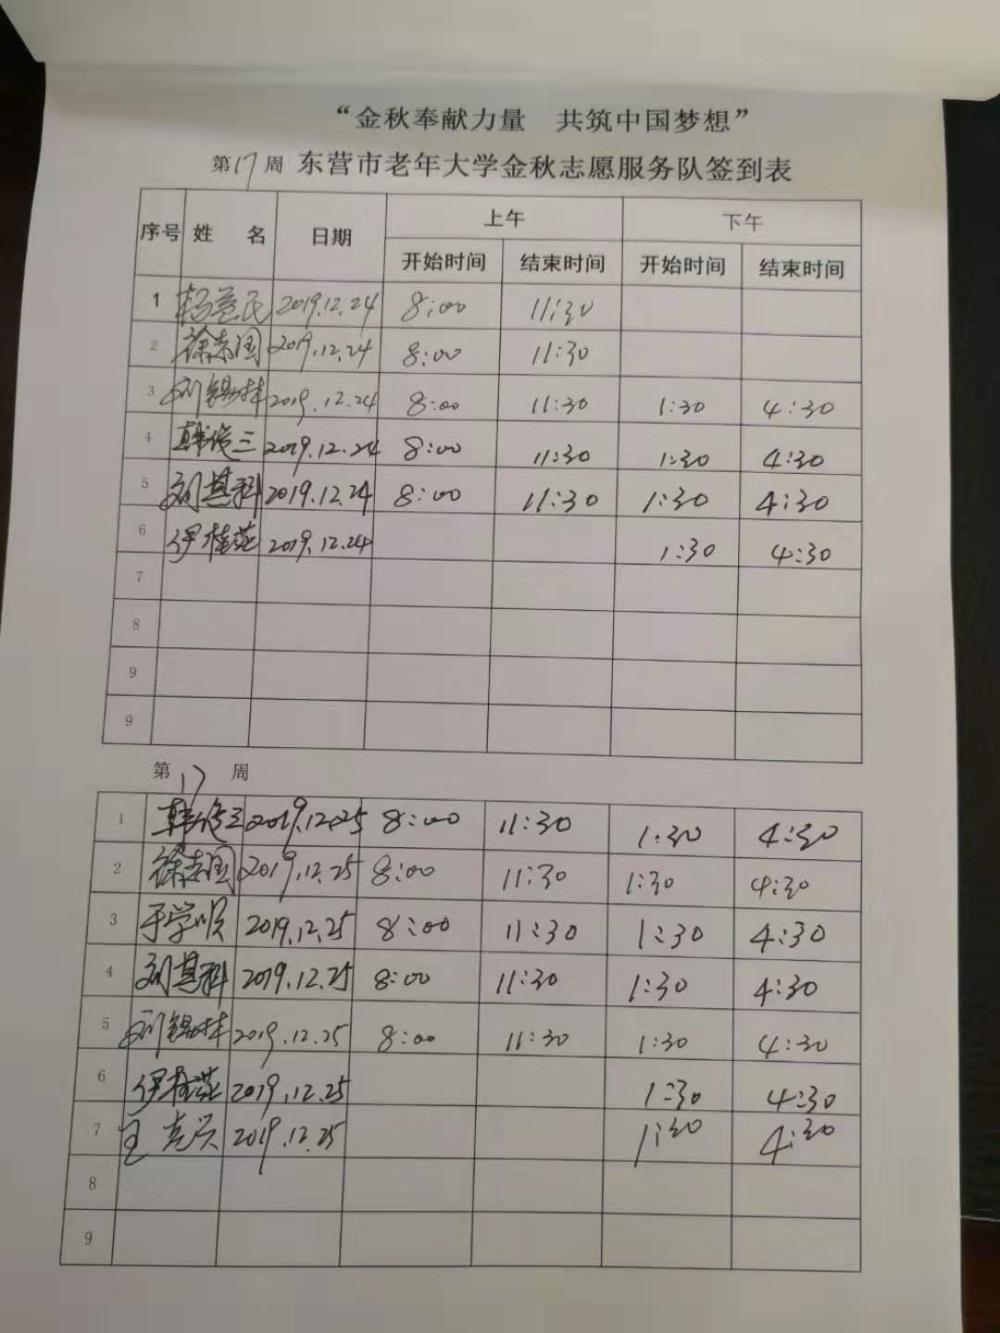 “金秋奉献力量 共筑中国梦想”
第17周 东营市老年大学金秋志愿服务队签到表
序号 姓 名 日期 上午 下午
开始时间 结束时间 开始时间 结束时间
1 2019.12.24 8:00 11:30
2 徐志国 2019.12.24 8:00 11:30
3 刘锡林 2019.12.24 8:00 11:30 1:30 4:30
4 韩俊三 2019.12.24 8:00 11:30 1:30 4:30
5 刘其科 2019.12.24 8:00 11:30 1:30 4:30
6 伊桂莲 2019.12.24 1:30 4:30
7
8
9
9
第17周
1 韩俊三 2019.12.25 8:00 11:30 1:30 4:30
2 徐志国 2019.12.25 8:00 11:30 1:30 4:30
3 于学顺 2019.12.25 8:00 11:30 1:30 4:30
4 刘其科 2019.12.25 8:00 11:30 1:30 4:30
5 刘锡林 2019.12.25 8:00 11:30 1:30 4:30
6 伊桂莲 2019.12.25 1:30 4:30
7 王克兴 2019.12.25 1:30 4:30
8
9